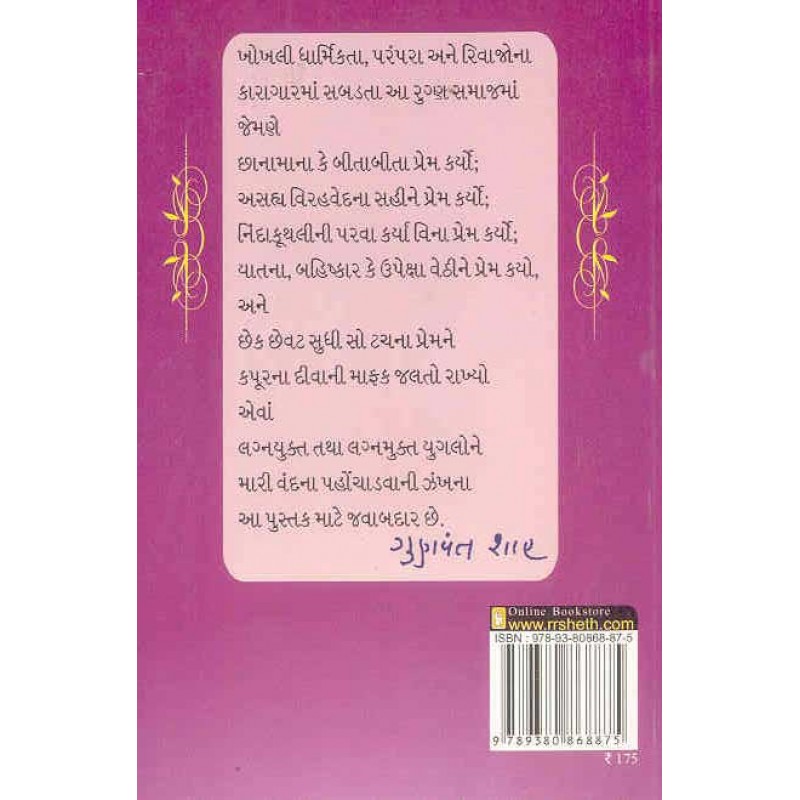 ખોખલી ધાર્મિકતા, પરંપરા અને રિવાજોના
કારાગારમાં સબડતા આ રુગ્ણ સમાજમાં
જેમણે
છાનામાના કે બીતાબીતા પ્રેમ કર્યો;
અસહ્ય વિરહવેદના સહીને પ્રેમ કર્યો;
નિંદાકૂથલીની પરવા કર્યા વિના પ્રેમ કર્યો;
યાતના, બહિષ્કાર કે ઉપેક્ષા વેઠીને પ્રેમ કયો,
અને
છેક છેવટ સુધી સો ટચના પ્રેમને
કપૂરના દીવાની માફક જલતો રાખ્યો
એવાં
લગ્નયુક્ત તથા લગ્નમુક્ત યુગલોને
મારી વંદના પહોંચાડવાની ઝંખના
આ પુસ્તક માટે જવાબદાર છે.
ગુણવંત શાહ
Online Bookstore
www.rrsheth.com
ISBN : 978-93-80868-87-5
9 789380 868875
₹ 175